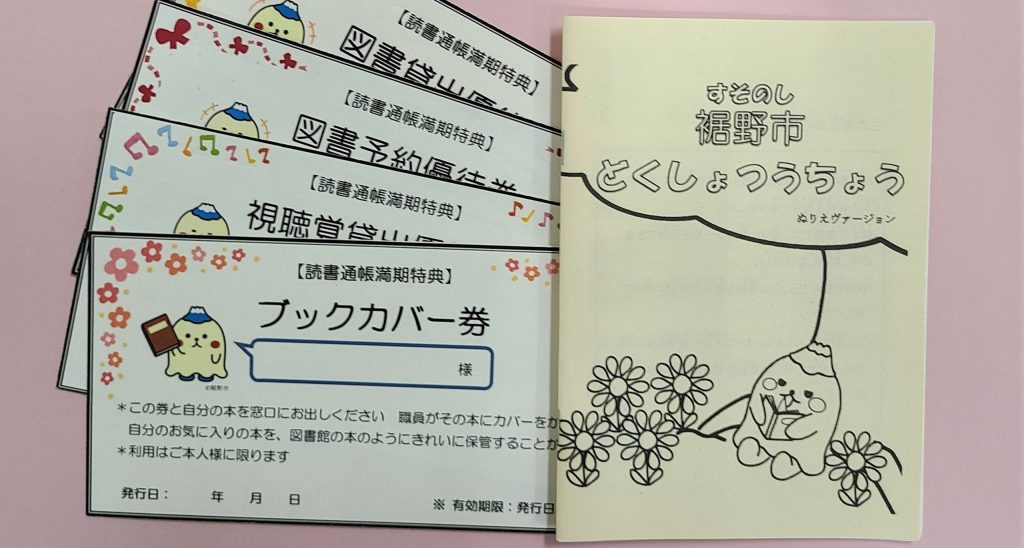 【読書通帳満期特典】
図書貸出優
【読書通帳満期特典】
図書予約優待券
【読書通帳満期特典】
視聴覚貸出優
【読書通帳満期特典】
ブックカバー券
様
©裾野市
＊この券と自分の本を窓口にお出しください 職員がその本にカバーをか
自分のお気に入りの本を、図書館の本のようにきれいに保管することが
＊利用はご本人様に限ります
発行日： 年 月 日
※ 有効期限：発行日
すそのし
裾野市
どくしょつうちょう
ぬりえヴァージョン